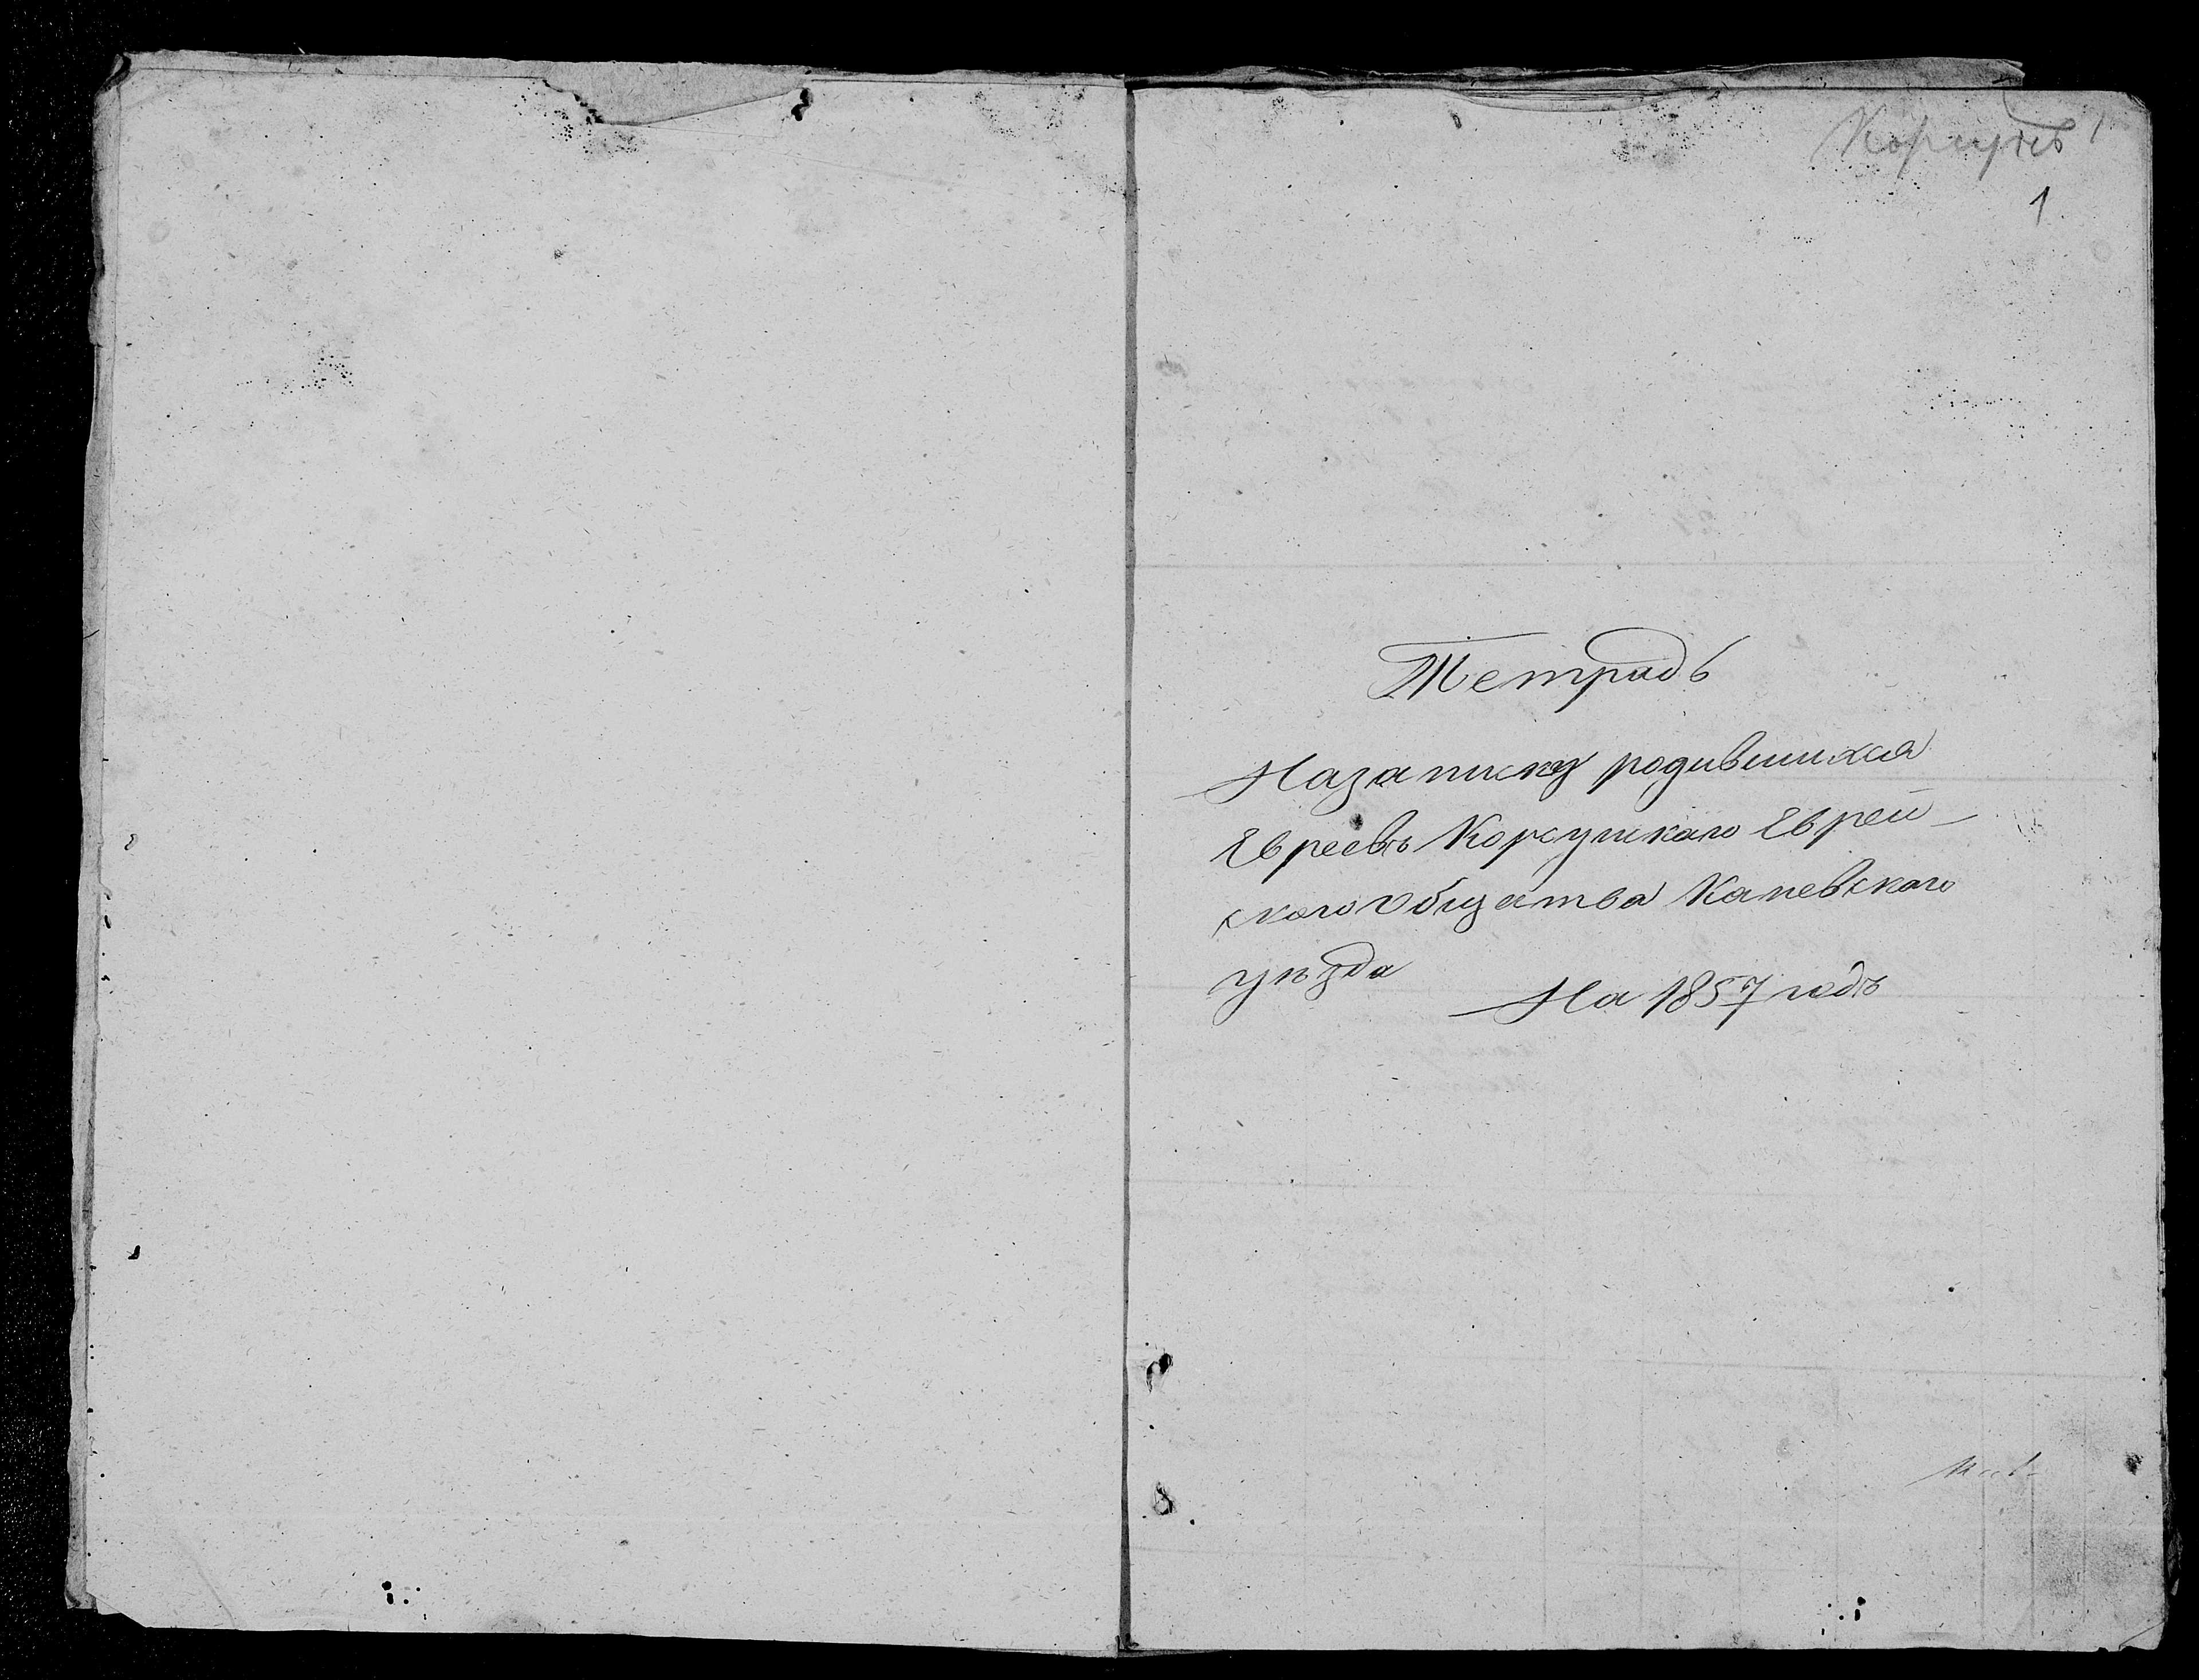 Корсунь 1
1
Тетрадь
На записку родившихся
Евреевъ Корсунскаго Еврей-
скаго Общества Каневскаго
уѣзда
На 1857 годъ